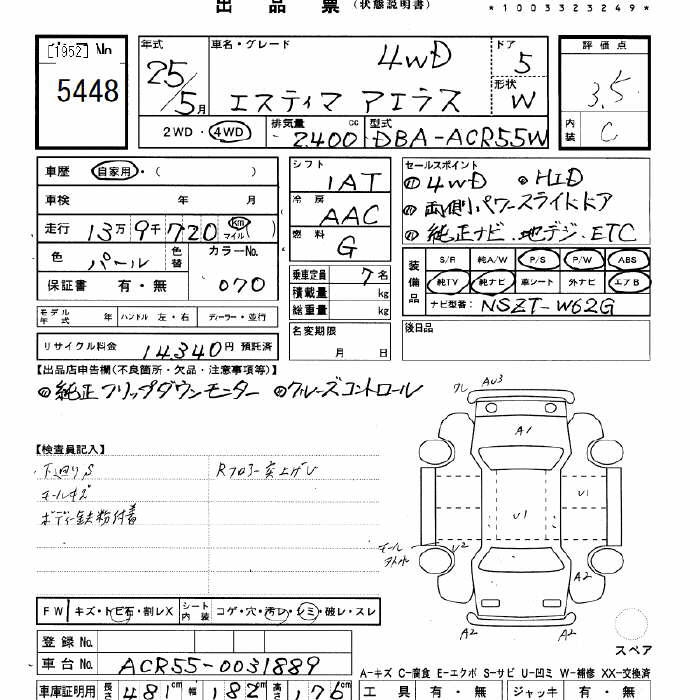 出品票 (状態説明書)
*1003323249*
[1952] No 5448
年式 25/5月
車名・グレード 4WD
エスティマ アエラス
ドア 5
形状 W
評価点 3.5
内装 C
2WD・4WD 排気量 2400 cc 型式 DBA-ACR55W
車歴 自家用・( )
車検 年 月
走行 13万9千720 km マイル
色 パール 色替 カラーNo. 070
保証書 有・無
シフト 1AT
冷房 AAC
燃料 G
乗車定員 7名
積載量 kg
総重量 kg
名変期限 月 日
セールスポイント
①4WD ◎HID
◎両側パワースライドドア
◎純正ナビ.地デジ.ETC
装備品 S/R 純A/W P/S P/W ABS
純TV 純ナビ 車シート 外ナビ エアB
ナビ型番: NSZT-W62G
後日品
モデル年式 年 ハンドル 左・右 ディーラー・並行
リサイクル料金 14,340円 預託済
【出品店申告欄(不良箇所・欠品・注意事項等)】
◎純正フリップダウンモニター ◎クルーズコントロール
【検査員記入】
下廻りS Rフロアー突上げ
ホールキズ
ボディー鉄粉付着
AU3
A1
U1
U1
U2
A2
A2
A2
スペア
FW キズ・トビ石・割レX シート内装 コゲ・穴・汚レ・シミ・破レ・スレ
登録No.
車台No. ACR55-0031889
A-キズ C-腐食 E-エクボ S-サビ U-凹ミ W-補修 XX-交換済
車庫証明用 長さ 481cm 幅 182cm 高さ 176cm
工具 有・無 ジャッキ 有・無